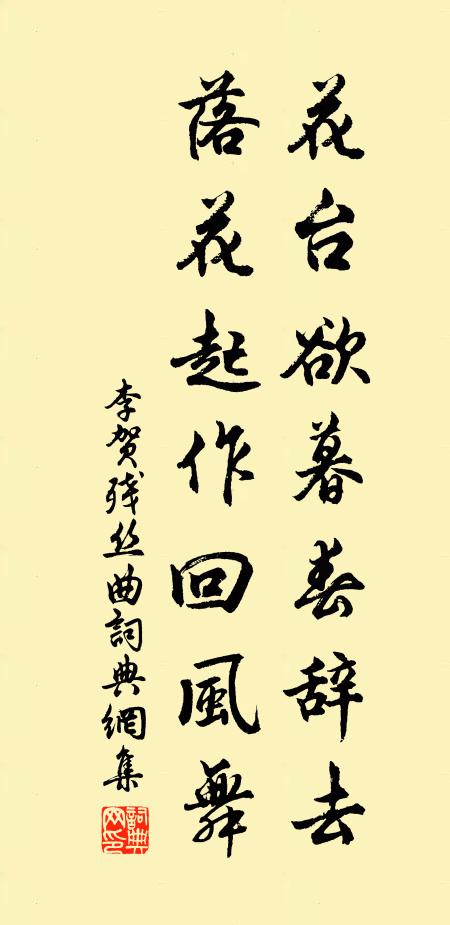 花台欲暮春辞去
落花起作回風舞
李贺残丝曲詞典網集
詞典网印